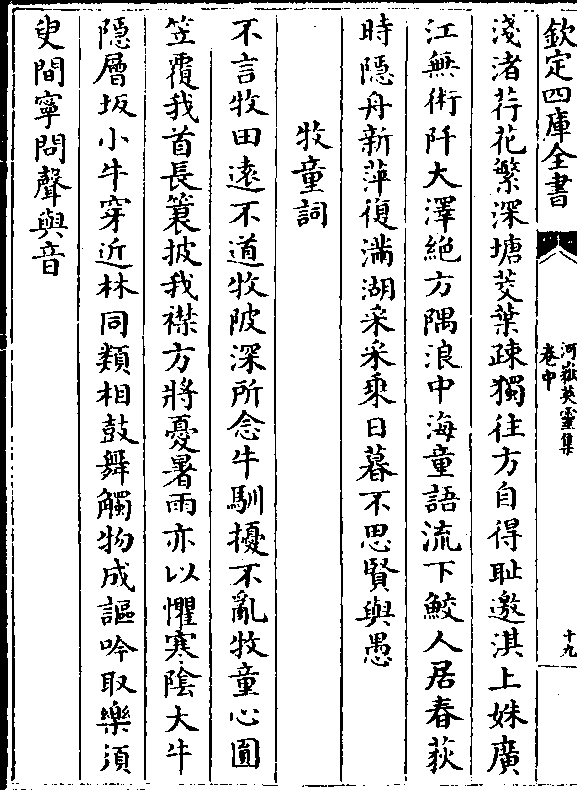 欽定四庫全書
河嶽英靈集
卷中
十九
淺渚荇花繁深塘茭葉疎獨往方自得耻邀淇上姝廣
江無術阡大澤絶方隅浪中海童語流下鮫人居春荻
時隱舟新萍復滿湖采采乗日暮不思賢與愚
牧童詞
不言牧田遠不道牧陂深所念牛馴擾不亂牧童心圓
笠覆我首長簑披我襟方將憂暑雨亦以懼寒陰大牛
隠層坂小牛穿近林同類相鼓舞觸物成謳吟取樂須
臾間寧問聲與音